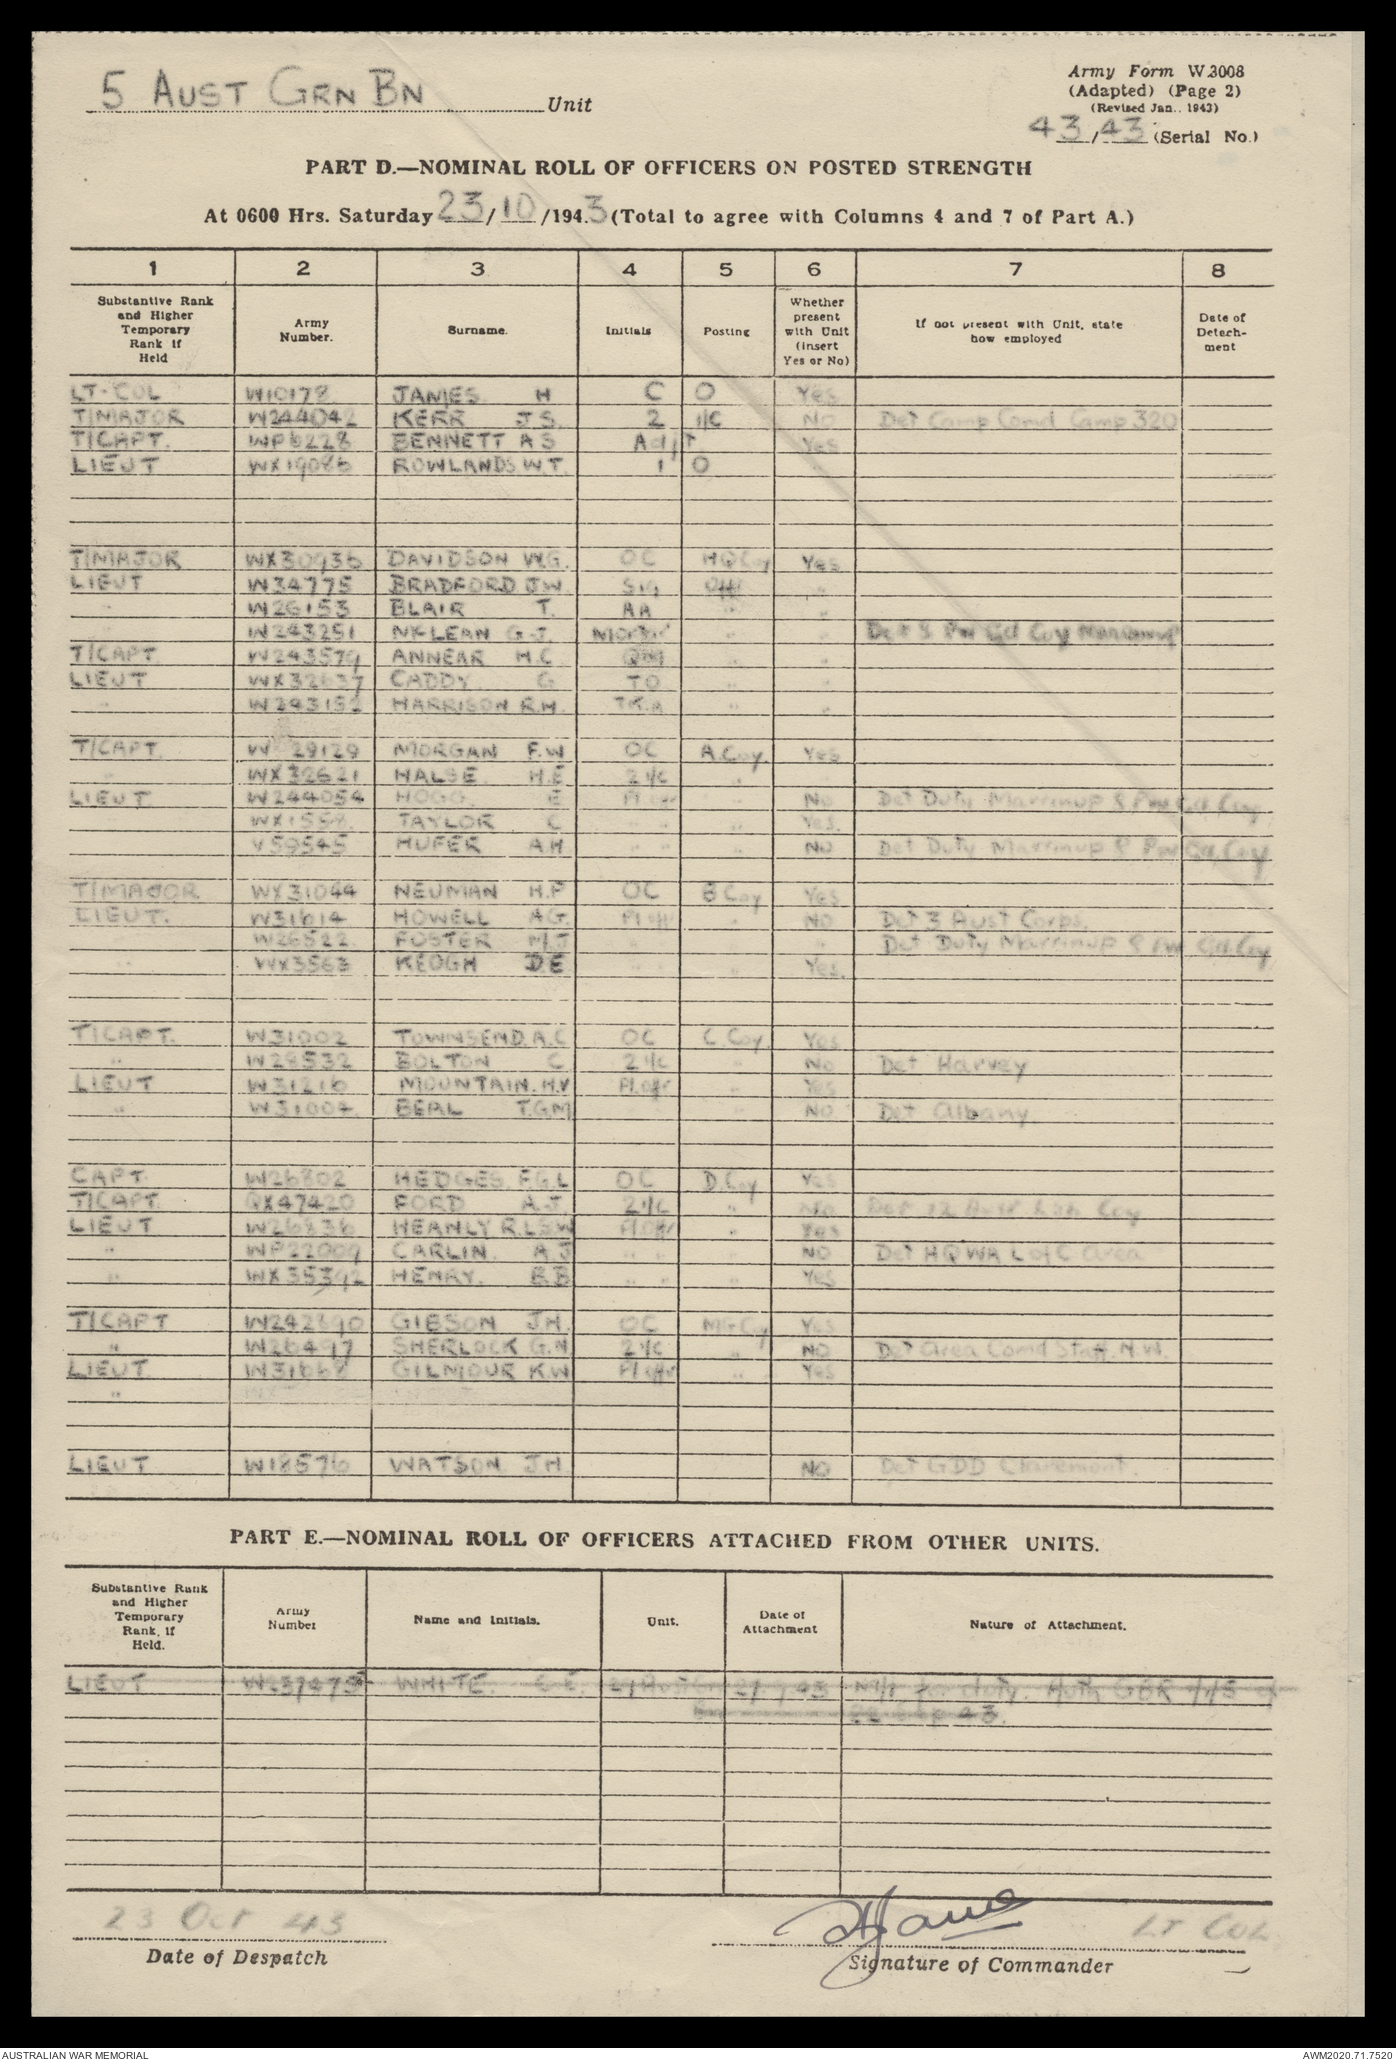 5 AUST GRN BN Unit
Army Form W.3008
(Adapted) (Page 2)
(Revised Jan., 1943)
43/43 (Serial No.)
PART D.—NOMINAL ROLL OF OFFICERS ON POSTED STRENGTH
At 0600 Hrs. Saturday 23/10/1943 (Total to agree with Columns 4 and 7 of Part A.)
1 2 3 4 5 6 7 8
Substantive Rank and Higher Temporary Rank if Held
Army Number.
Surname.
Initials
Posting
Whether present with Unit (insert Yes or No)
If not present with Unit, state how employed
Date of Detachment
LT-COL W10178 JAMES H C O Yes
T/MAJOR W244042 KERR J.S. 2 I/C NO Det Camp Comd Camp 320
T/CAPT. WP6228 BENNETT A S Adjt Yes
LIEUT WX19086 ROWLANDS W.T. I O
T/MAJOR WX30936 DAVIDSON W.G. OC HQ Coy Yes
LIEUT W34775 BRADFORD J.W. Sig Offr "
" W26153 BLAIR T. AA " "
" W243251 McLEAN G.J. Mortar " "
T/CAPT W243579 ANNEAR H.C QM "
LIEUT WX32637 CADDY G TO " "
" W243152 HARRISON R.H. TK.A " "
T/CAPT. W 29129 MORGAN F.W OC A.Coy. Yes
" WX32621 HALSE H.E 2 I/C "
LIEUT W244054 HOGG E Pl.offr " NO Det Duty Marrinup 8 PW Gd. Coy
WX1558 TAYLOR C " " " Yes.
V59545 HUFER A.H. " " " NO Det Duty Marrinup 8 PW Gd. Coy
T/MAJOR WX31044 NEUMAN H.P OC B Coy Yes
LIEUT. W31614 HOWELL A.G. Pl offr " NO Det 3 Aust Corps.
" W26522 FOSTER M.J " " Det Duty Marrinup 8 PW Gd. Coy
" WX3563 KEOGH D.E " Yes.
T/CAPT. W31002 TOWNSEND. A.C OC C.Coy. Yes
" W28532 BOLTON C. 2 I/C NO Det Harvey
LIEUT W31216 MOUNTAIN. H.V Pl.offr " Yes
" W31004 BEAL T.G.M " NO Det Albany.
CAPT. W26802 HEDGES. F.G.L OC D.Coy Yes
T/CAPT. QX47420 FORD A.J. 2 I/C " NO Det 12 Aust Coy
LIEUT W26836 HEANLY R.L.S.W Pl.Offr Yes
" WP22009 CARLIN. A.J " " " NO Det HQ WA L of C Area
" WX35392 HENRY. B.B " " " Yes
T/CAPT W242890 GIBSON J.H. OC MG Coy Yes
" W26497 SHERLOCK G.N. 2 I/C " NO Det Area Comd Staff. N.W.
LIEUT W31668 GILMOUR K.W Pl offr " Yes
"
LIEUT W18576 WATSON J.H. NO Det GDD Claremont.
PART E.—NOMINAL ROLL OF OFFICERS ATTACHED FROM OTHER UNITS.
Substantive Rank and Higher Temporary Rank, if Held.
Army Number
Name and Initials.
Unit.
Date of Attachment
Nature of Attachment.
LIEUT W237475 WHITE. E E. for duty. Auth GBR
23 Oct 43
Date of Despatch
HJames LT COL
Signature of Commander
AUSTRALIAN WAR MEMORIAL
AWM2020.71.7520